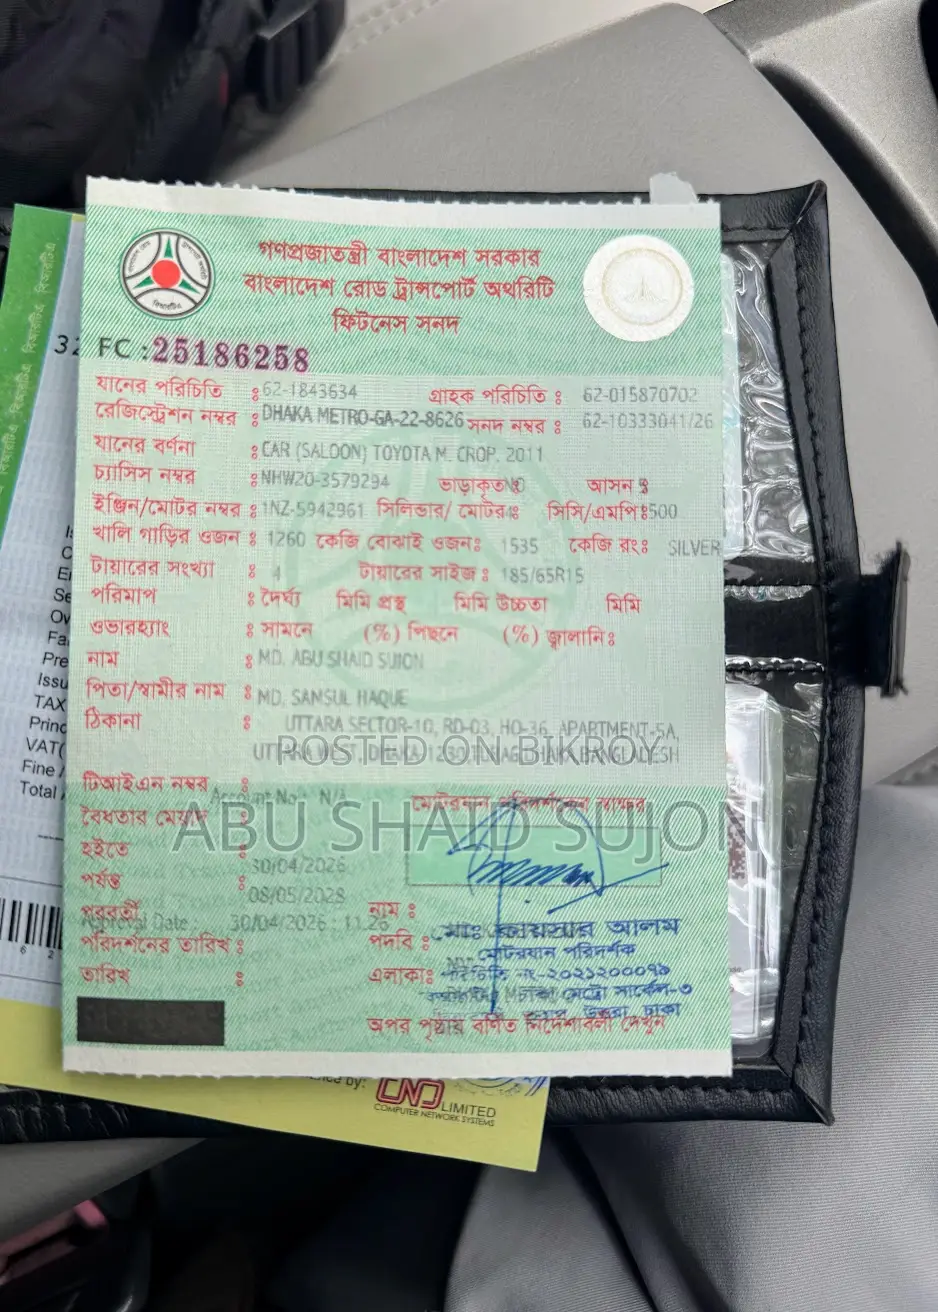 গণপ্রজাতন্ত্রী বাংলাদেশ সরকার
বাংলাদেশ রোড ট্রান্সপোর্ট অথরিটি
ফিটনেস সনদ
বিআরটিএ
32
FC :25186258
যানের পরিচিতি : 62-1843634 গ্রাহক পরিচিতি : 62-015870702
রেজিস্ট্রেশন নম্বর : DHAKA METRO-GA-22-8626 সনদ নম্বর : 62-10333041/26
যানের বর্ণনা : CAR (SALOON) TOYOTA M. CROP. 2011
চ্যাসিস নম্বর : NHW20-3579294 ভাড়াকৃত: NO আসন :
ইঞ্জিন/মোটর নম্বর : 1NZ-5942961 সিলিন্ডার/ মোটর: সিসি/এমপি: 500
খালি গাড়ির ওজন : 1260 কেজি বোঝাই ওজন: 1535 কেজি রং: SILVER
টায়ারের সংখ্যা : 4 টায়ারের সাইজ : 185/65R15
পরিমাপ : দৈর্ঘ্য মিমি প্রস্থ মিমি উচ্চতা মিমি
ওভারহ্যাং : সামনে (%) পিছনে (%) জ্বালানি:
নাম : MD. ABU SHAID SUJON
পিতা/স্বামীর নাম : MD. SAMSUL HAQUE
ঠিকানা : UTTARA SECTOR-10, RD-03, HO-36, APARTMENT-5A,
UTTARA WEST, DHAKA-1230, DHAKA, BANGLADESH
POSTED ON BIKROY
টিআইএন নম্বর :
Account No: N/A
মোটরযান পরিদর্শকের স্বাক্ষর
ABU SHAID SUJON
বৈধতার মেয়াদ :
হইতে : 30/04/2026
পর্যন্ত : 08/05/2028
পরবর্তী
Approval Date : 30/04/2026 : 11:26
পরিদর্শনের তারিখ :
তারিখ :
নাম : মোঃ কায়সার আলম
পদবি : মোটরযান পরিদর্শক
এলাকা: নং-২০২১২০০০৭৯
মেট্রো সার্কেল-৩
উত্তরা, ঢাকা
অপর পৃষ্ঠায় বর্ণিত নির্দেশাবলী দেখুন
Pre
Issu
TAX
Princ
VAT(
Fine /
Total
6 2
by:
CNS LIMITED
COMPUTER NETWORK SYSTEMS